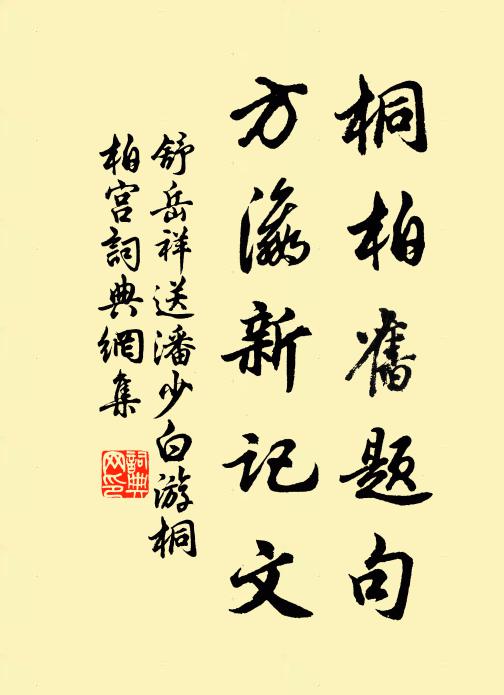 桐柏舊題句
方瀛新记文
舒岳祥送潘少白游桐
柏宫詞典網集
詞典网印